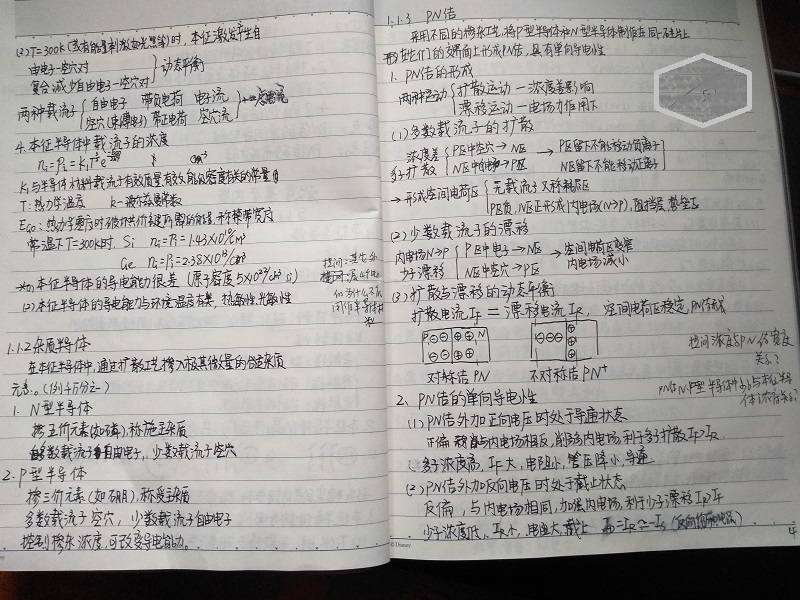 (2) T=300K(或有能量刺激如光照等)时，本征激发产生自
由电子-空穴对
复合减少自由电子-空穴对 } 动态平衡
两种载流子 { 自由电子 带负电荷 电子流
空穴 带正电荷 空穴流
4.本征半导体中载流子的浓度
ni=Pi=K1T
K1与半导体材料载流子有效质量有效能级密度有关的常量
T:热力学温度 k-玻尔兹曼常数
EGO:热力学零度时破坏共价键所需的能量,称禁带宽度
常温下T=300k时, Si ni=Pi=1.43×10^10/cm³
Ge ni=Pi=2.38×10^13/cm³
(1)本征半导体的导电能力很差(原子密度5×10^22/cm³ Si)
(2)本征半导体的导电能力与环境温度有关,热敏性光敏性
1.1.2杂质半导体
在本征半导体中,通过扩散工艺,掺入极其微量的合适杂质
元素。
1. N型半导体
掺五价元素(如磷),称施主杂质
多数载流子自由电子,少数载流子空穴
2. P型半导体
掺三价元素(如硼),称受主杂质
多数载流子空穴, 少数载流子自由电子
控制掺杂浓度,可改变导电能力。
1.1.3 PN结
采用不同的掺杂工艺,将P型半导体和N型半导体制作在同一硅片上
形在它们的交界面上形成PN结,具有单向导电性
1. PN结的形成
两种运动 { 扩散运动—浓度差影响
漂移运动—电场力作用下
(1)多数载流子的扩散
浓度差
多子扩散 { P区中空穴→N区
N区中电子→P区 → P区留下不能移动负离子
N区留下不能移动正离子
→形成空间电荷区 { 无载流子又称耗尽区
P区负,N区正形成内电场(N→P),阻挡层,势垒区
(2)少数载流子的漂移
内电场N→P
少子漂移 { P区中电子→N区
N区中空穴→P区 → 空间电荷区变窄
内电场减小
(3)扩散与漂移的动态平衡
扩散电流IF = 漂移电流IR, 空间电荷区稳定,PN结成
P ⊖⊖ ⊕⊕ N
⊖⊖ ⊕⊕
⊖⊖⊖ ⊕
⊕
⊕
对称结PN 不对称结PN⁺
提问浓度与PN结宽度
关系?
2、PN结的单向导电性
(1)PN结外加正向电压时处于导通状态
正偏 与内电场相反,削弱内电场利于多子扩散IF>IR
多子浓度高, IF大,电阻小,管压降小,导通
(2)PN结外加反向电压时处于截止状态
反偏, 与内电场相同,加强内电场,利于少子漂移IR>IF
少子浓度低, IR小, 电阻大,截止
© Disney
4